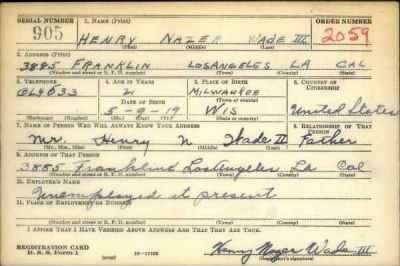 SERIAL NUMBER 1. NAME (Print) ORDER NUMBER
905 HENRY NAZER WADE III 2059
(First) (Middle) (Last)
2. ADDRESS (Print)
3885 FRANKLIN LOSANGELES LA CAL
(Number and street or R. F. D. number) (Town) (County) (State)
3. TELEPHONE 4. AGE IN YEARS 5. PLACE OF BIRTH 6. COUNTRY OF CITIZENSHIP
OL4033 21 MILWAUKEE
DATE OF BIRTH (Town or county)
5-9-19 WIS United States
(Exchange) (Number) (Mo.) (Day) (Yr.) (State or country)
7. NAME OF PERSON WHO WILL ALWAYS KNOW YOUR ADDRESS 8. RELATIONSHIP OF THAT PERSON
Mr Henry N Wade II Father
(Mr., Mrs., Miss) (First) (Middle) (Last)
9. ADDRESS OF THAT PERSON
3885 Franklin LosAngeles La Cal
(Number and street or R. F. D. number) (Town) (County) (State)
10. EMPLOYER'S NAME
Unemployed at present
11. PLACE OF EMPLOYMENT OR BUSINESS
(Number and street or R. F. D. number) (Town) (County) (State)
I AFFIRM THAT I HAVE VERIFIED ABOVE ANSWERS AND THAT THEY ARE TRUE.
REGISTRATION CARD
D. S. S. Form 1 (over) 16-17105 Henry Nazer Wade III
(Registrant's signature)